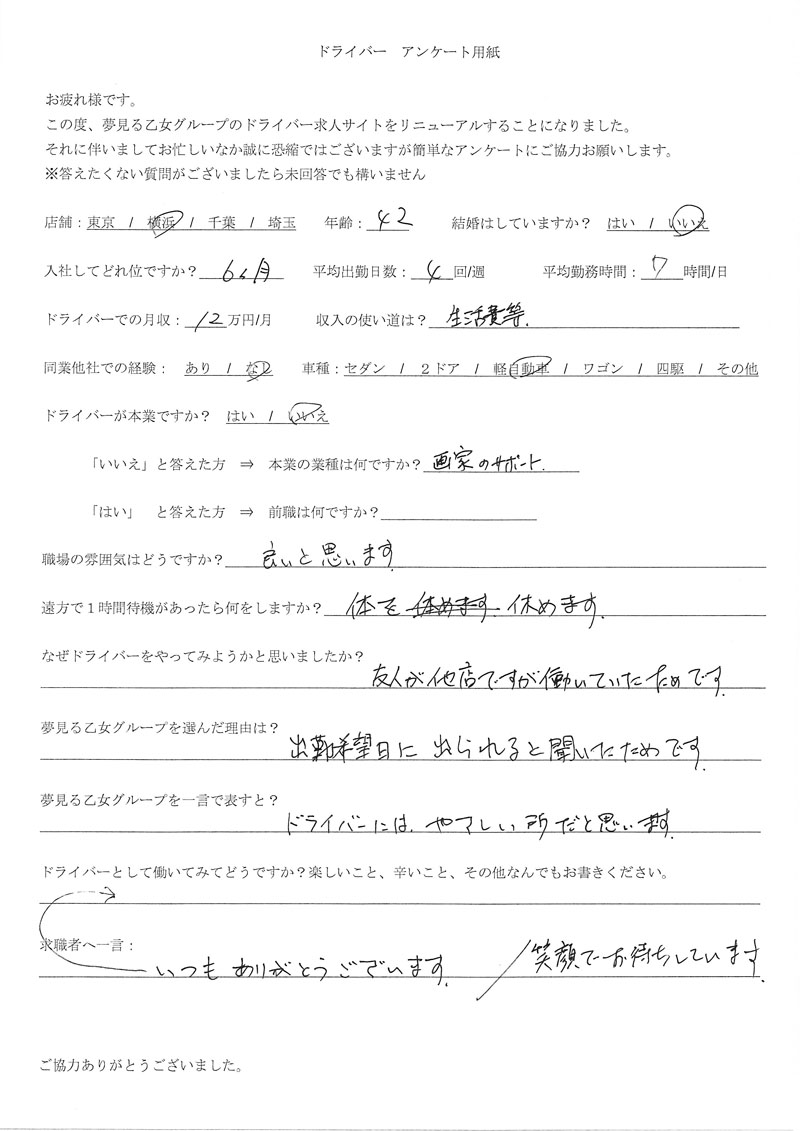 ドライバー　アンケート用紙
お疲れ様です。
この度、夢見る乙女グループのドライバー求人サイトをリニューアルすることになりました。
それに伴いましてお忙しいなか誠に恐縮ではございますが簡単なアンケートにご協力お願いします。
※答えたくない質問がございましたら未回答でも構いません
店舗：東京　/　横浜　/　千葉　/　埼玉　　年齢：42　　結婚はしていますか？　はい　/　いいえ
入社してどれ位ですか？　6ヶ月　　平均出勤日数：4 回/週　　平均勤務時間：7 時間/日
ドライバーでの月収：12 万円/月　　収入の使い道は？　生活費等.
同業他社での経験：　あり　/　なし　　車種：セダン　/　２ドア　/　軽自動車　/　ワゴン　/　四駆　/　その他
ドライバーが本業ですか？　はい　/　いいえ
「いいえ」と答えた方　⇒　本業の業種は何ですか？ 画家のサポート.
「はい」　と答えた方　⇒　前職は何ですか？
職場の雰囲気はどうですか？ 良いと思います
遠方で１時間待機があったら何をしますか？ 体を 休めます. 休めます.
なぜドライバーをやってみようかと思いましたか？
友人が他店ですが働いていたためです.
夢見る乙女グループを選んだ理由は？
出勤希望日に出られると聞いたためです.
夢見る乙女グループを一言で表すと？
ドライバーには、やさしい所だと思います.
ドライバーとして働いてみてどうですか？楽しいこと、辛いこと、その他なんでもお書きください。
求職者へ一言：
いつもありがとうございます. / 笑顔でお待ちしています.
ご協力ありがとうございました。